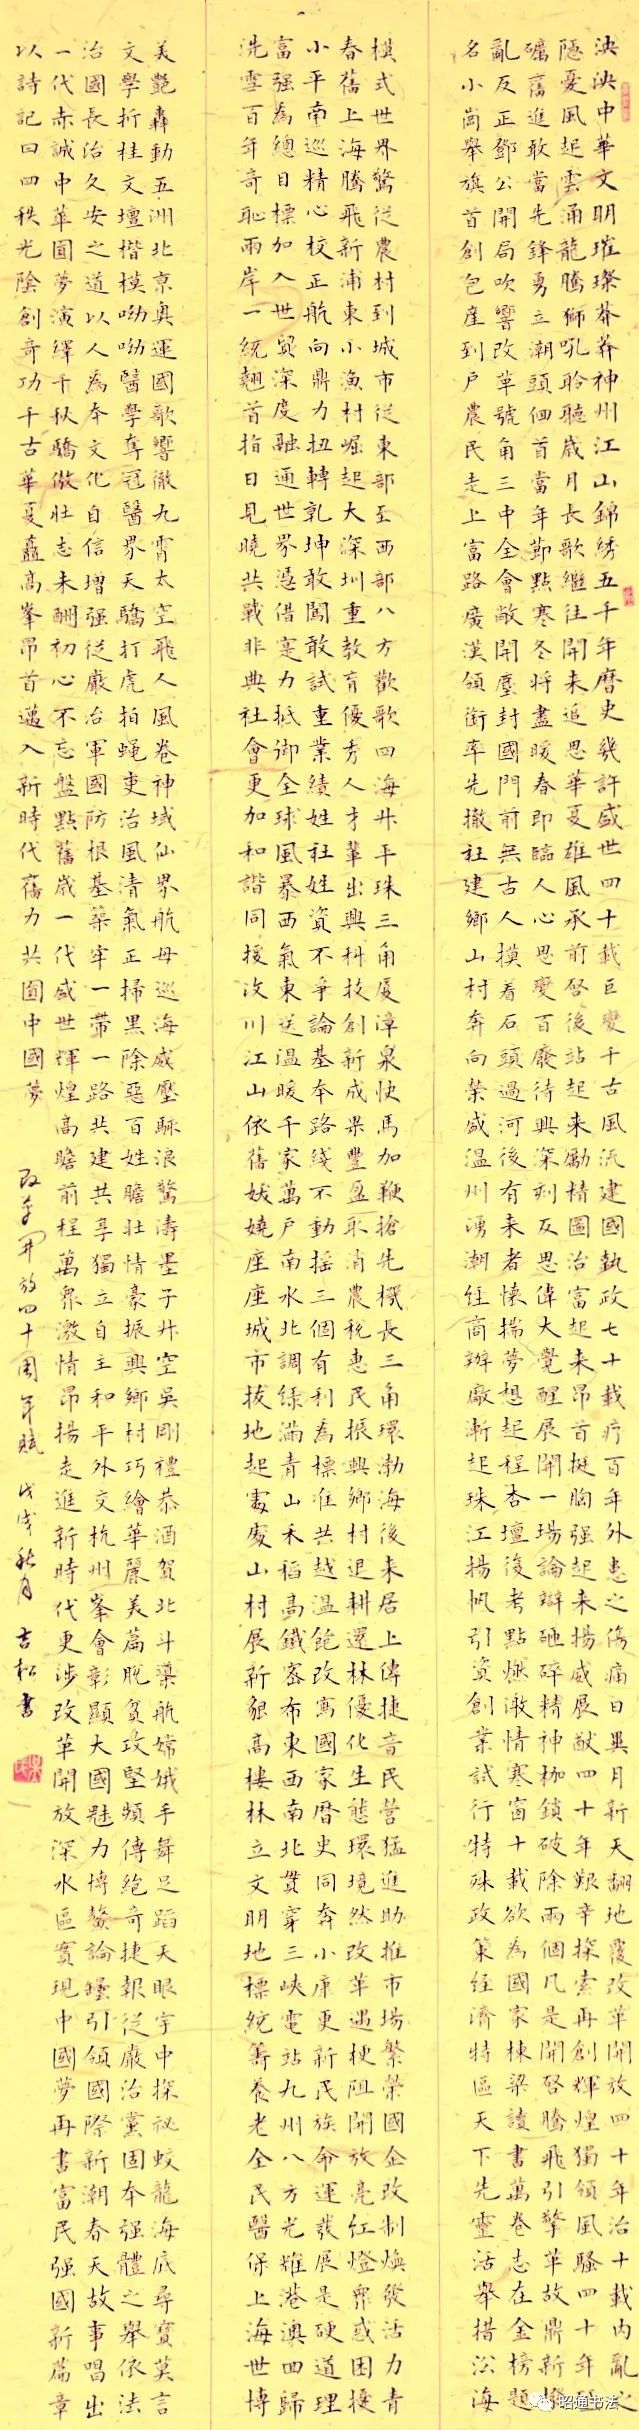 泱泱中華文明璀璨莽莽神州江山錦綉五千年曆史幾許盛世四十載巨變千古風流建國執政七十載疗百年外患之傷痛日異月新天翻地覆改革開放四十年治十載内亂之
隱憂風起雲涌龍騰獅吼聆聽歲月長歌繼往開来追思華夏雄風承前啓後站起来勵精圖治富起来昂首挺胸强起来揚威展猷四十年艱辛探索再創輝煌獨領風騷四十年砥
礪奮進敢當先鋒勇立潮頭佪首當年節點寒冬将盡暖春即臨人心思變百廢待興深刻反思偉大覺醒展開一場論辯砸碎精神枷鎖破除兩個凡是開啓騰飛引擎革故鼎新撥
亂反正鄧公開局吹響改革號角三中全會敞開塵封國門前無古人摸着石頭過河後有来者懷揣夢想起程杏壇後考點燃激情寒窗十載欲為國家棟梁讀書萬卷志在金榜題
名小崗舉旗首創包産到户農民走上富路廣漢領銜率先撤社建鄉山村奔向榮盛温州湧潮经商辦廠漸起珠江揚帆引資創業試行特殊政策经濟特區天下先靈活舉措沿海
模式世界驚従農村到城市従東部至西部八方歡歌四海升平珠三角厦漳泉快馬加鞭搶先機長三角環渤海後来居上傳捷音民營猛進助推市場繁榮國企改制焕發活力青
春舊上海騰飛新浦東小漁村崛起大深圳重教育優秀人才輩出興科技創新成果豐盈取消農税惠民振興鄉村退耕還林優化生態環境然改革遇梗阻開放亮红燈衆惑困擾
小平南巡精心校正航向鼎力扭轉乾坤敢闖敢試重業績姓社姓資不争論基本路綫不動摇三個有利為標准共越温飽改寫國家曆史同奔小康更新民族命運发展是硬道理
富强為總目標加入世貿深度融通世界憑借寔力抵御全球風暴西氣東送温暖千家萬户南水北調緑滿青山禾稻高鐵密布東西南北貫穿三峡電站九州八方光耀港澳回歸
洗雪百年奇恥兩岸一統翹首指日見曉共戰非典社會更加和諧同援汶川江山依舊妖嬈座座城市拔地起處處山村展新貌高樓林立文明地標統籌養老全民醫保上海世博
美艷轟動五洲北京奥運國歌響徹九霄太空飛人風卷神域仙界航母巡海威壓駭浪驚濤墨子升空吳剛禮恭酒賀北斗導航嫦娥手舞足蹈天眼宇中探祕蛟龍海底尋寶莫言
文學折桂文壇楷模呦呦醫學奪冠醫界天驕打虎拍蝇吏治風清氣正掃黑除惡百姓膽壯情豪振興鄉村巧繪華麗美篇脱貧攻堅頻傳绝奇捷報従嚴治黨固本强體之舉依法
治國長治久安之道以人為本文化自信增强従嚴治軍國防根基築牢一帶一路共建共享獨立自主和平外交杭州峯會彰顯大國魅力博鰲論壇引領國際新潮春天故事唱出
一代赤誠中華圓夢演繹千秋驕傲壮志未酬初心不忘盤點舊歲一代盛世輝煌高瞻前程萬衆激情昂揚走進新時代更涉改革開放深水區實現中國夢再書富民强國新篇章
以詩記曰四秩光陰創奇功千古華夏矗高峯昂首邁入新時代奮力共圓中國夢
改革開放四十周年賦 戊戌秋月 吉松書
昭通书法